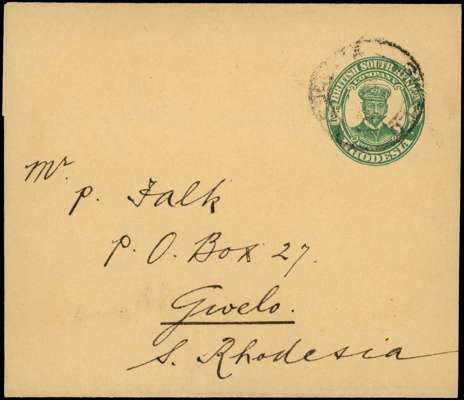 BRITISH SOUTH AFRICA
COMPANY
RHODESIA
Mr
P. Falk
P. O. Box 27.
Gwelo.
S. Rhodesia